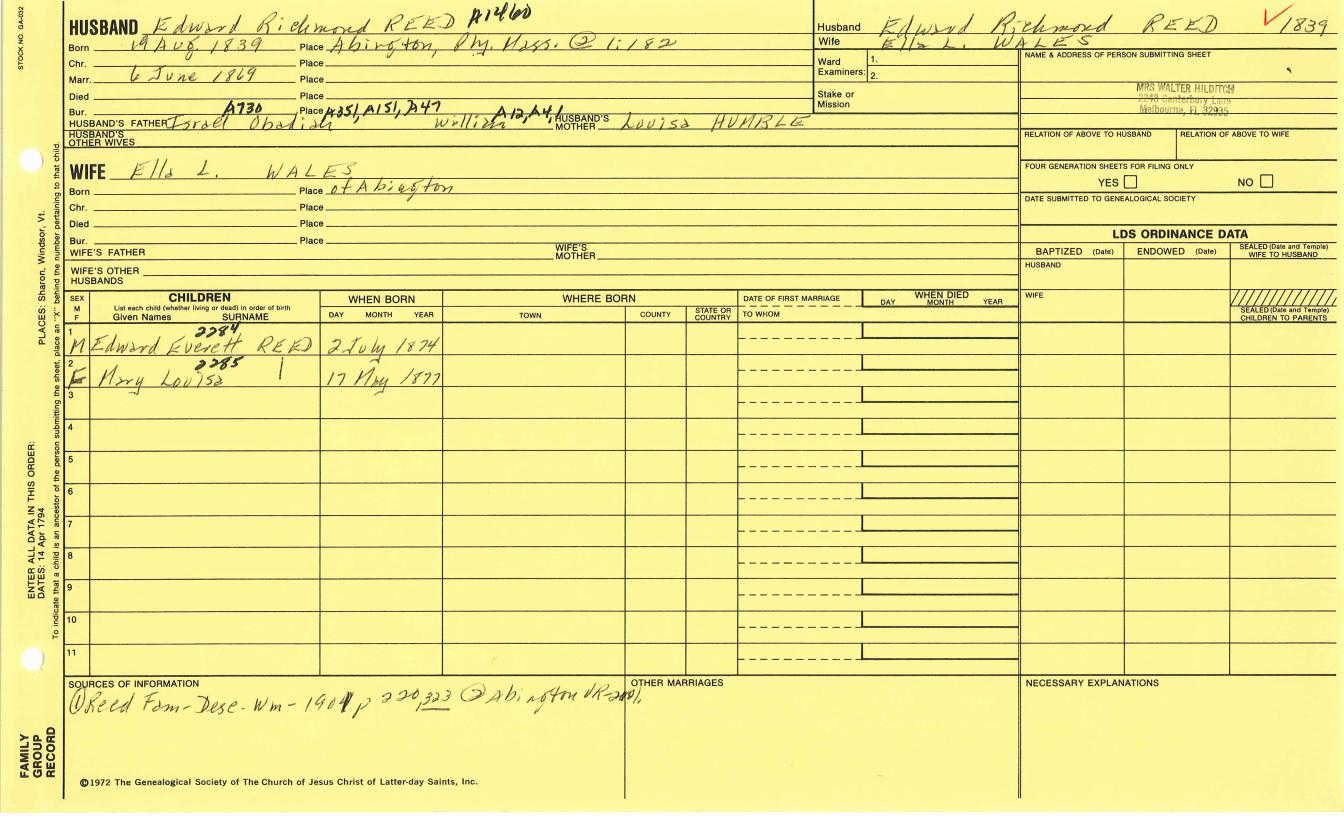 STOCK NO. GA-032
HUSBAND Edward Richmond REED A1460
Born 19 Aug. 1839 Place Abington, Ply. Mass. @ 1:182
Chr. Place
Marr. 6 June 1869 Place
Died Place
Bur. A730 Place A351, A151, A47 A12, A4,1
HUSBAND'S FATHER Israel Obadiah William HUSBAND'S MOTHER Louisa HUMBLE
HUSBAND'S OTHER WIVES
WIFE Ella L. WALES
Born Place of Abington
Chr. Place
Died Place
Bur. Place
WIFE'S FATHER WIFE'S MOTHER
WIFE'S OTHER HUSBANDS
Husband Edward Richmond REED 1839
Wife Ella L. WALES
Ward Examiners: 1.
2.
Stake or Mission
NAME & ADDRESS OF PERSON SUBMITTING SHEET
MRS WALTER HILDITCH
2248 Canterbury Lane
Melbourne, FL 32935
RELATION OF ABOVE TO HUSBAND RELATION OF ABOVE TO WIFE
FOUR GENERATION SHEETS FOR FILING ONLY
YES NO
DATE SUBMITTED TO GENEALOGICAL SOCIETY
LDS ORDINANCE DATA
BAPTIZED (Date) ENDOWED (Date) SEALED (Date and Temple) WIFE TO HUSBAND
HUSBAND
WIFE
SEALED (Date and Temple) CHILDREN TO PARENTS
SEX M F CHILDREN WHEN BORN WHERE BORN DATE OF FIRST MARRIAGE WHEN DIED
List each child (whether living or dead) in order of birth
Given Names SURNAME DAY MONTH YEAR TOWN COUNTY STATE OR COUNTRY TO WHOM DAY MONTH YEAR
2284
1 M Edward Everett REED 2 July 1874
2285
2 F Mary Louisa 17 May 1877
3
4
5
6
7
8
9
10
11
SOURCES OF INFORMATION
① Reed Fam- Desc- Wm- 1901 p 220, 323 ② Abington VR
OTHER MARRIAGES
NECESSARY EXPLANATIONS
©1972 The Genealogical Society of The Church of Jesus Christ of Latter-day Saints, Inc.
PLACES: Sharon, Windsor, Vt.
ENTER ALL DATA IN THIS ORDER:
DATES: 14 Apr 1794
To indicate that a child is an ancestor of the person submitting the sheet, place an "X" behind the number pertaining to that child.
FAMILY GROUP RECORD